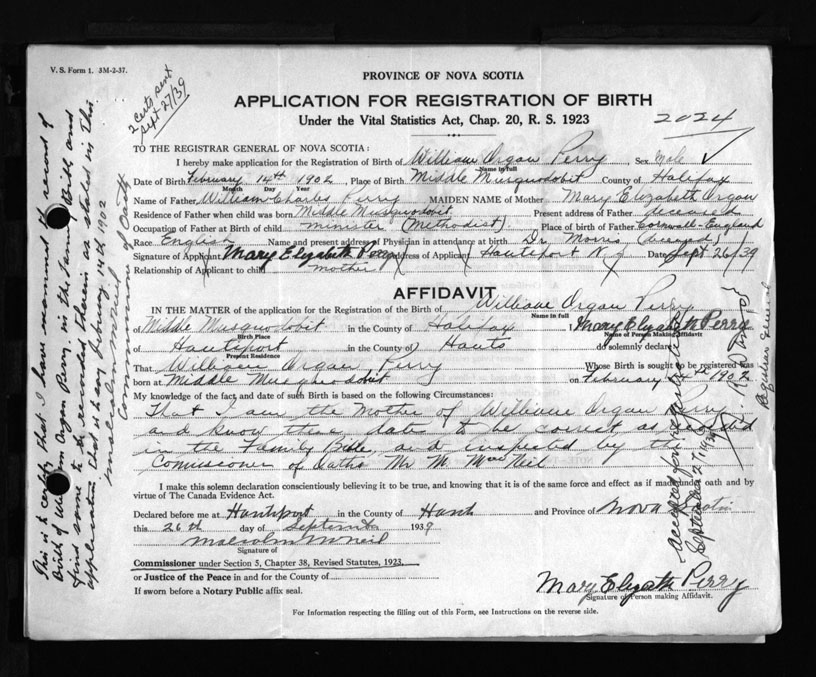 V. S. Form 1. 3M-2-37.
2 certs sent
Sept 27/39
PROVINCE OF NOVA SCOTIA
APPLICATION FOR REGISTRATION OF BIRTH
Under the Vital Statistics Act, Chap. 20, R. S. 1923
2024
TO THE REGISTRAR GENERAL OF NOVA SCOTIA:
I hereby make application for the Registration of Birth of William Organ Perry Sex Male ✓
Name in full
Date of Birth February 14th 1902, Place of Birth Middle Musquodobit County of Halifax
Month Day Year
Name of Father William Charles Perry MAIDEN NAME of Mother Mary Elizabeth Organ
Residence of Father when child was born Middle Musquodobit Present address of Father deceased
Occupation of Father at Birth of child minister (Methodist). Place of birth of Father Cornwall-England
Race English Name and present address of Physician in attendance at birth Dr. Morris (deceased)
Signature of Applicant Mary Elizabeth Perry Address of Applicant Hantsport N.S. Date Sept 26/39
Relationship of Applicant to child mother
AFFIDAVIT
IN THE MATTER of the application for the Registration of Birth of William Organ Perry
Name in full
of Middle Musquodobit in the County of Halifax I Mary Elizabeth Perry
Birth Place Name of Person Making Affidavit
of Hantsport in the County of Hants do solemnly declare
Present Residence
That William Organ Perry Whose Birth is sought to be registered was
born at Middle Musquodobit on February 14th 1902
My knowledge of the fact and date of such Birth is based on the following Circumstances:
That I am the Mother of William Organ Perry
and know these dates to be correct as recorded
in the Family Bible, and inspected by the
Commissioner of Oaths Mr M. MacNeil
I make this solemn declaration conscientiously believing it to be true, and knowing that it is of the same force and effect as if made under oath and by
virtue of The Canada Evidence Act.
Declared before me at Hantsport in the County of Hants and Province of Nova Scotia
this 26th day of September 1939
Malcolm McNeil
Signature of
Commissioner under Section 5, Chapter 38, Revised Statutes, 1923,
or Justice of the Peace in and for the County of
If sworn before a Notary Public affix seal.
Mary Elizabeth Perry
Signature of Person making Affidavit.
For Information respecting the filling out of this Form, see Instructions on the reverse side.
This is to certify that I have examined the record of
Birth of William Organ Perry in the Family Bible and
find same to be recorded therein as stated in this
application that is to say February 14th 1902
Malcolm McNeil
Commissioner of Oaths
Accepted for registration
September 27, 1939
Registrar General